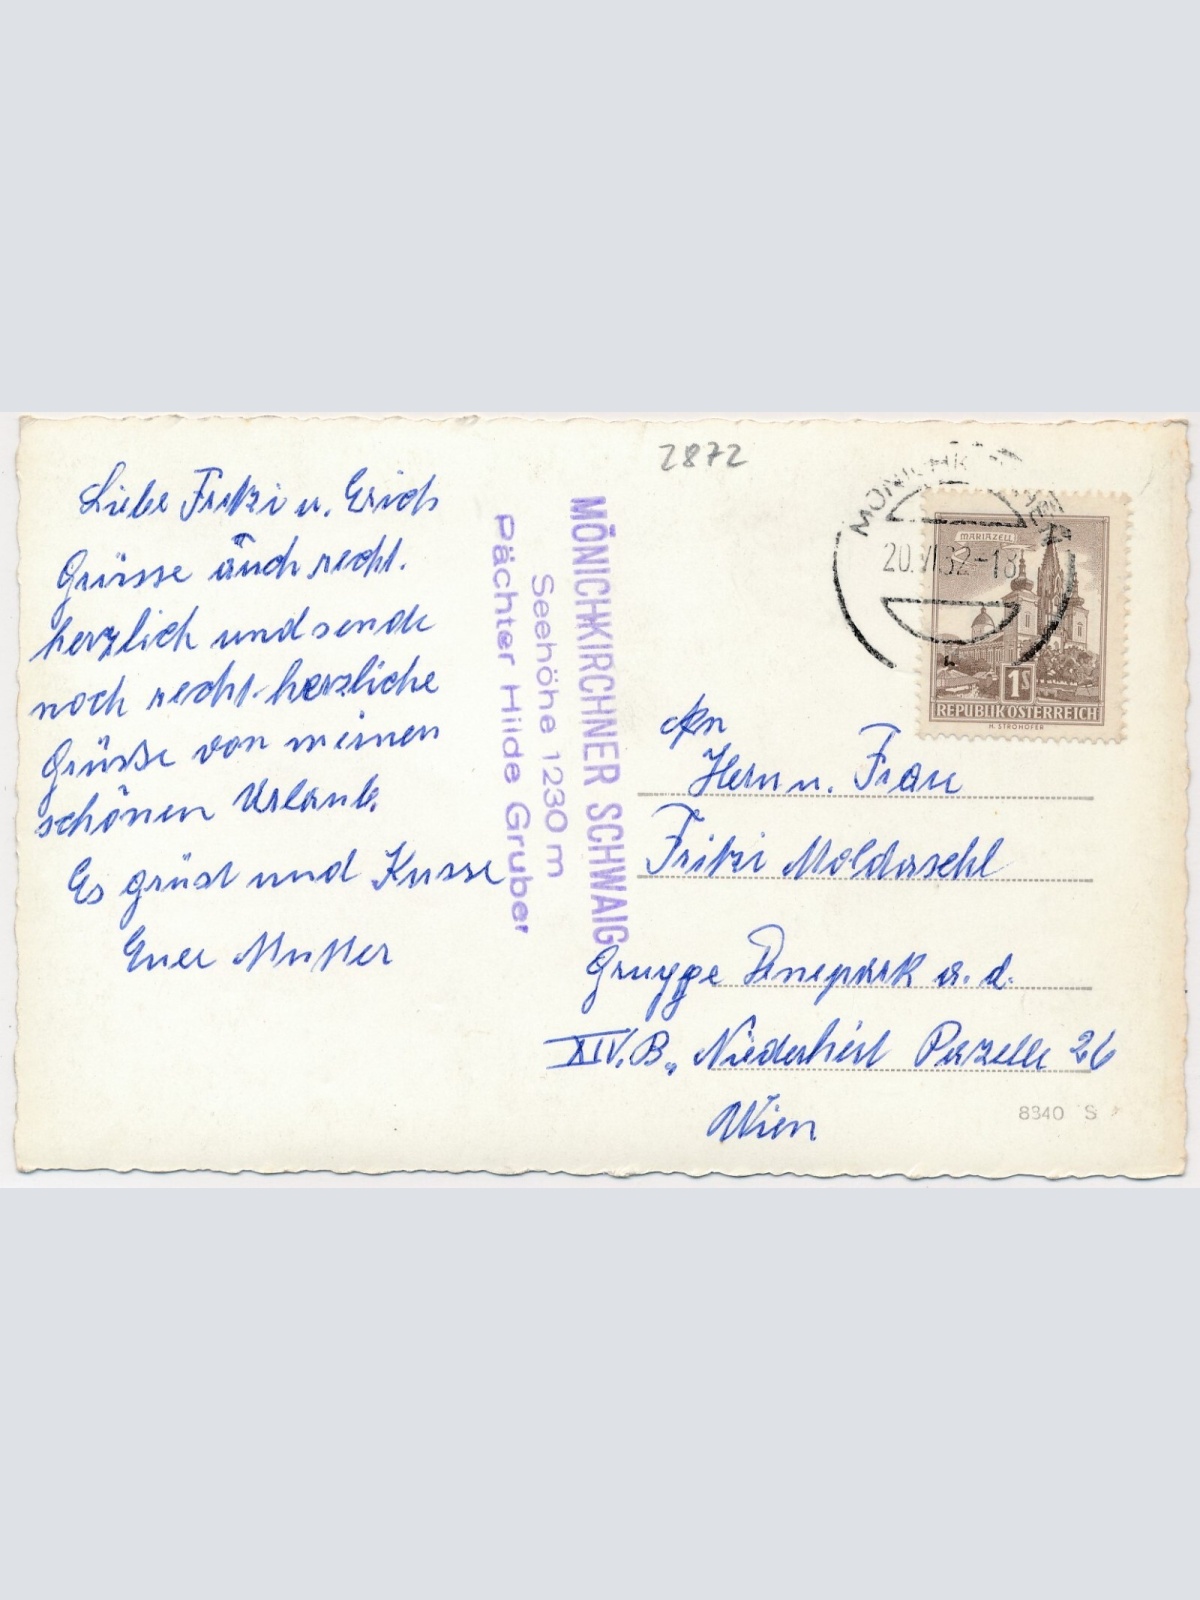 Liebe Fritzi u. Erich
Grüsse äuch recht.
herzlich und sende
noch recht herzliche
Grüße von meinen
schönen Urlaub.
Es grüst und Küsse
Eure Mutter
MÖNICHKIRCHNER SCHWAIG
Seehöhe 1230 m
Pächter Hilde Gruber
2872
20.VI.62-18
MARIAZELL
1S
REPUBLIK ÖSTERREICH
H. STROHOFER
An
Herrn u. Frau
Fritzi Moldaschl
Gruppe a. d.
XIV. B. Parzelle 26
Wien
8340 S